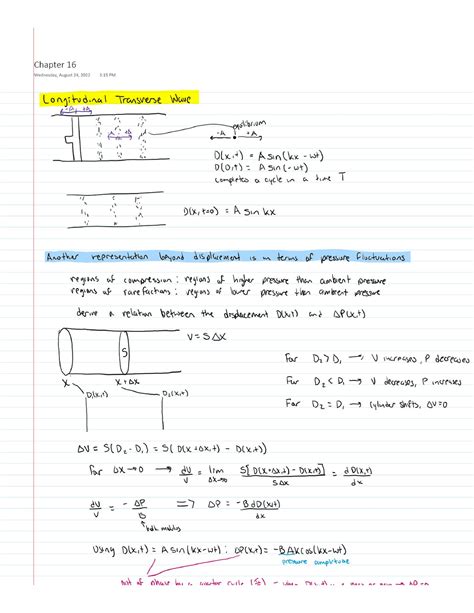 Chapter 16
Wednesday, August 24, 2022 3:15 PM
Longitudinal Transverse Wave
-A +A
-A +A
equilibrium
-A +A
D(x,t) = A sin(kx - wt)
D(0,t) = A sin(-wt)
completes a cycle in a time T
D(x,t=0) = A sin kx
Another representation beyond displacement is in terms of pressure fluctuations
regions of compression: regions of higher pressure than ambient pressure
regions of rarefactions: regions of lower pressure than ambient pressure
derive a relation between the displacement D(x,t) and ΔP(x,t)
V = SΔX
S
For D₂ > D₁ → V increases, P decreases
For D₂ < D₁ → V decreases, P increases
For D₂ = D₁ → cylinder shifts, ΔV=0
X X+ΔX
D₁(x,t) D₂(x,t)
ΔV = S(D₂ - D₁) = S(D(x+Δx,t) - D(x,t))
For ΔX→0 → dV/V = lim ΔX→0 S[D(x+Δx,t) - D(x,t)]/SΔX = dD(x,t)/dx
dV/V = -ΔP/B ⇒ ΔP = -B dD(x,t)/dx
bulk modulus
Using D(x,t) = A sin(kx-wt): ΔP(x,t) = -BAk cos(kx-wt)
pressure amplitude
out of phase by a quarter cycle